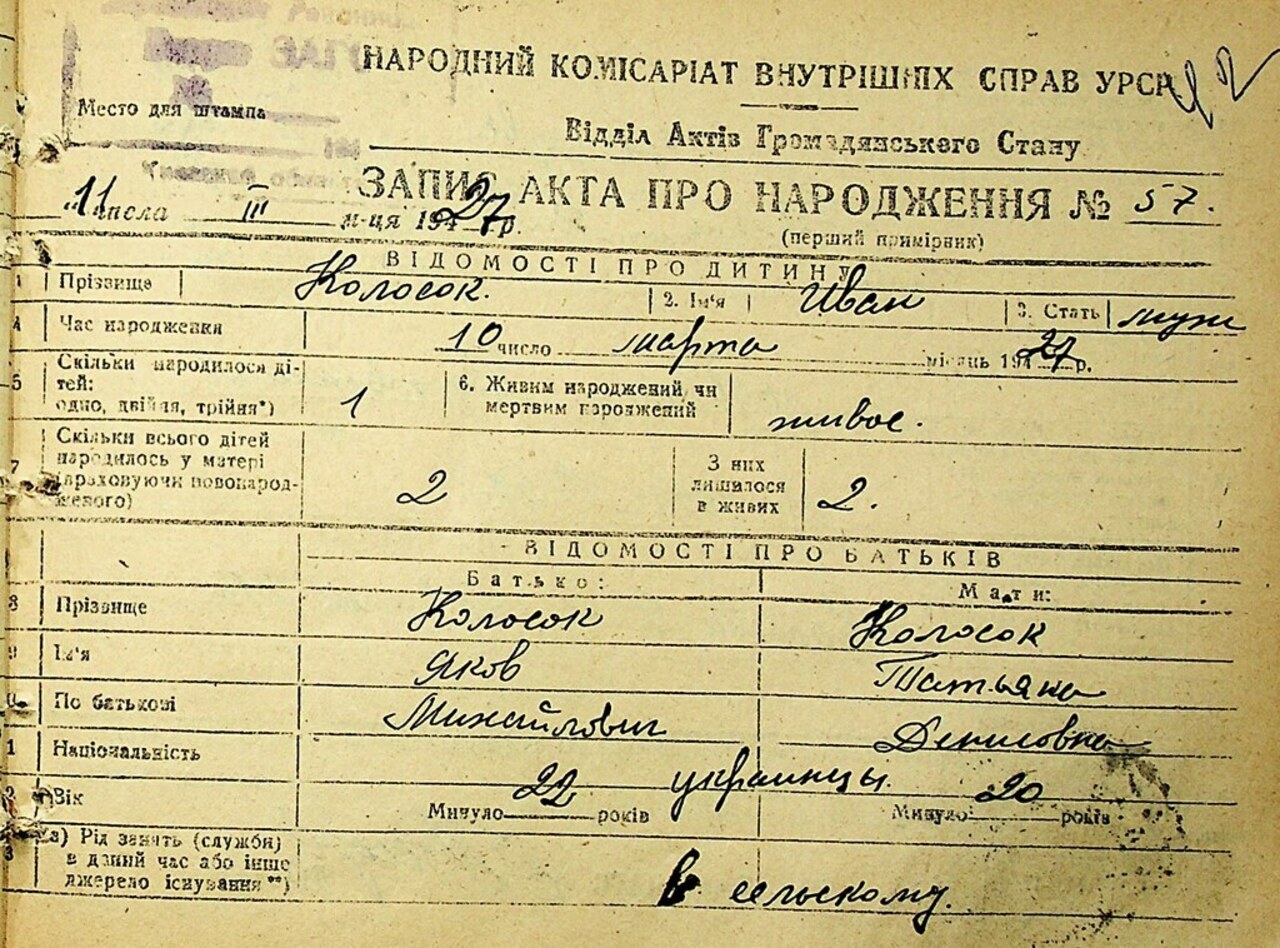 НАРОДНИЙ КОМІСАРІАТ ВНУТРІШНІХ СПРАВ УРСР
Место для штампа
Відділ Актів Громадянського Стану
ЗАПИС АКТА ПРО НАРОДЖЕННЯ № 57.
11 числа III м-ця 1927 р.
(перший примірник)
ВІДОМОСТІ ПРО ДИТИНУ
1 Прізвище Колосок. 2. Ім'я Иван 3. Стать муж
4 Час народження 10 число марта місяць 1927 р.
5 Скільки народилося ді-
тей:
одно, двійня, трійня*) 1
6. Живим народжений чи
мертвим народжений живое.
7 Скільки всього дітей
народилось у матері
(враховуючи новонарод-
женого) 2
З них
лишилося
в живих 2.
ВІДОМОСТІ ПРО БАТЬКІВ
Батько: Мати:
8 Прізвище Колосок Колосок
9 Ім'я Яков Татьяна
0 По батькові Михайлович Денисовна
1 Національність украинцы.
2 Вік Минуло 22 років Минуло 20 років
3 а) Рід занять (служби)
в даний час або інше
джерело існування**) в сельскому.